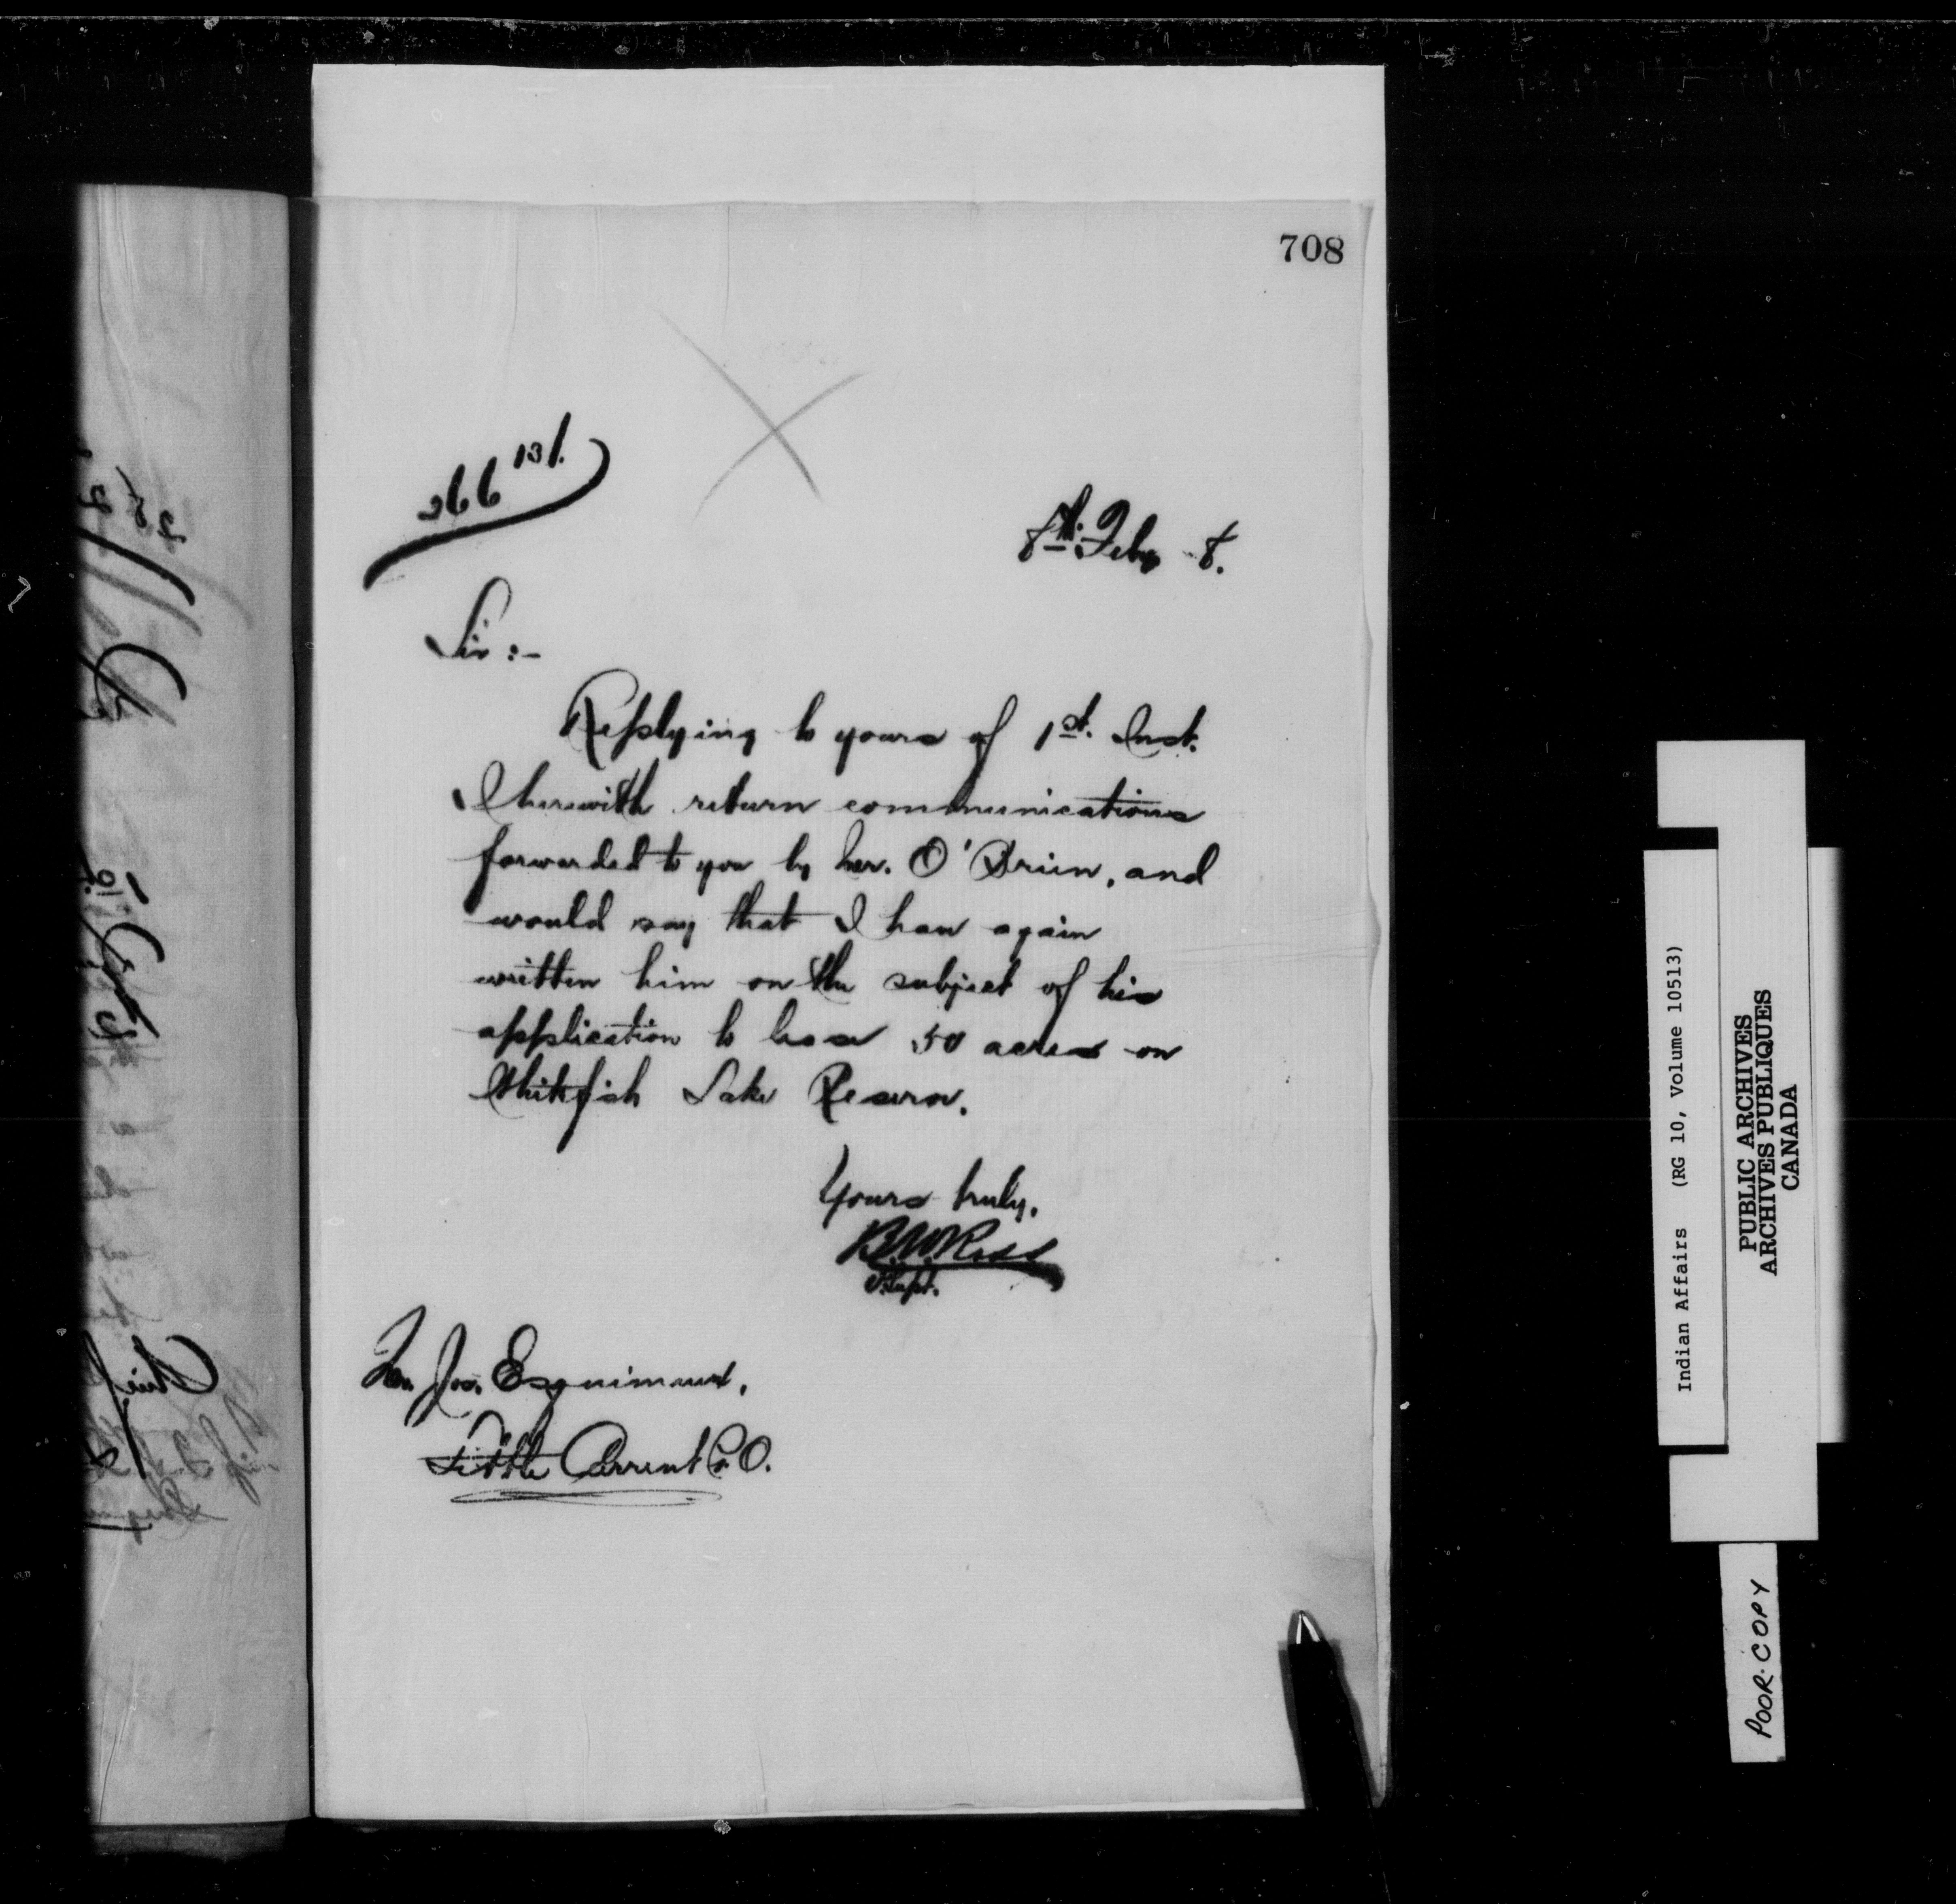 708
266 131.
8th. Feby 8.
Sir :-
Replying to yours of 1st. Inst.
I herewith return communications
forwarded to you by Mr. O'Brien, and
would say that I have again
written him on the subject of his
application to lease 50 acres on
Whitefish Lake Reserve.
Yours truly,
Supt.
Mr. Jos. Esquimaux,
Little Current P.O.
Indian Affairs (RG 10, Volume 10513)
PUBLIC ARCHIVES
ARCHIVES PUBLIQUES
CANADA
POOR COPY